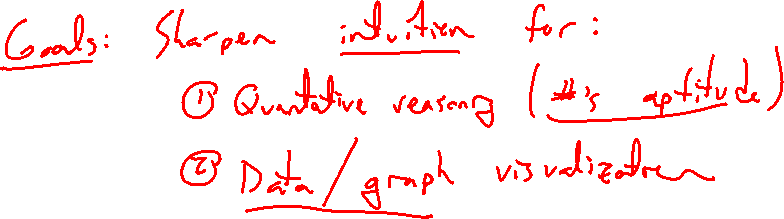 Goals: Sharpen intuition for:
① Quantative reasoning (#'s aptitude)
② Data/graph visualization